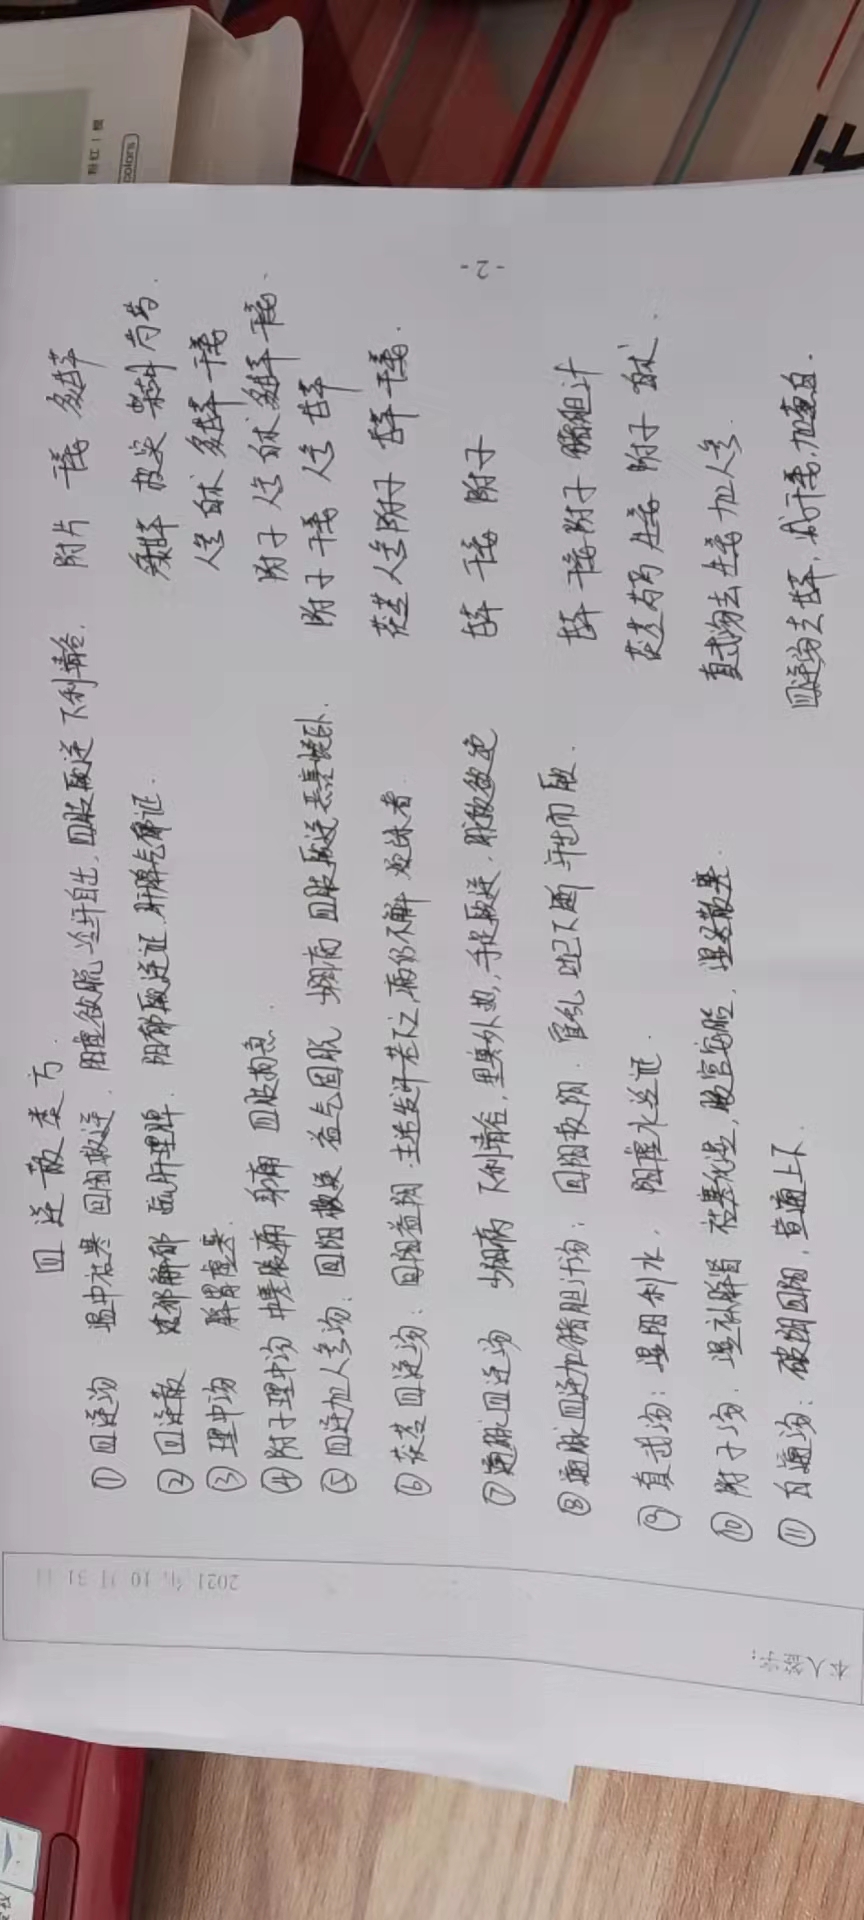 四逆散类方.
①四逆汤 温中祛寒 回阳救逆. 阳虚欲脱 冷汗自出, 四肢厥逆 下利清谷. 附片 干姜 炙甘草
②四逆散 透邪解郁 疏肝理脾. 阳郁厥逆证 肝脾气郁证. 炙甘草 枳实 柴胡 芍药.
③理中汤 脾胃虚寒. 人参 白术 炙甘草 干姜
④附子理中汤 中寒腹痛 身痛 四肢拘急. 附子 人参 白术 炙甘草 干姜.
⑤四逆加人参汤: 回阳救逆 益气固脱 少阴病 四肢厥逆 恶寒蜷卧. 附子 干姜 人参 甘草
⑥茯苓四逆汤: 回阳益阴 主治发汗若下之, 病仍不解 烦躁者 茯苓 人参 附子 甘草 干姜.
⑦通脉四逆汤 少阴病 下利清谷, 里寒外热, 手足厥逆, 脉微欲绝 甘草 干姜 附子
⑧通脉四逆加猪胆汁汤: 回阳救阴. 霍乱 吐已下断 汗出而厥. 甘草 干姜 附子 猪胆汁
⑨真武汤: 温阳利水, 阳虚水泛证. 茯苓 芍药 生姜 附子 白术.
⑩附子汤. 温补脾肾 祛寒化湿, 胞宫寒, 温经散寒. 真武汤去生姜 加人参.
⑪白通汤: 破阴回阳, 宣通上下. 四逆汤去甘草, 减干姜, 加葱白.
-2-
2021年10月31日
本人签字:
colors
粉红